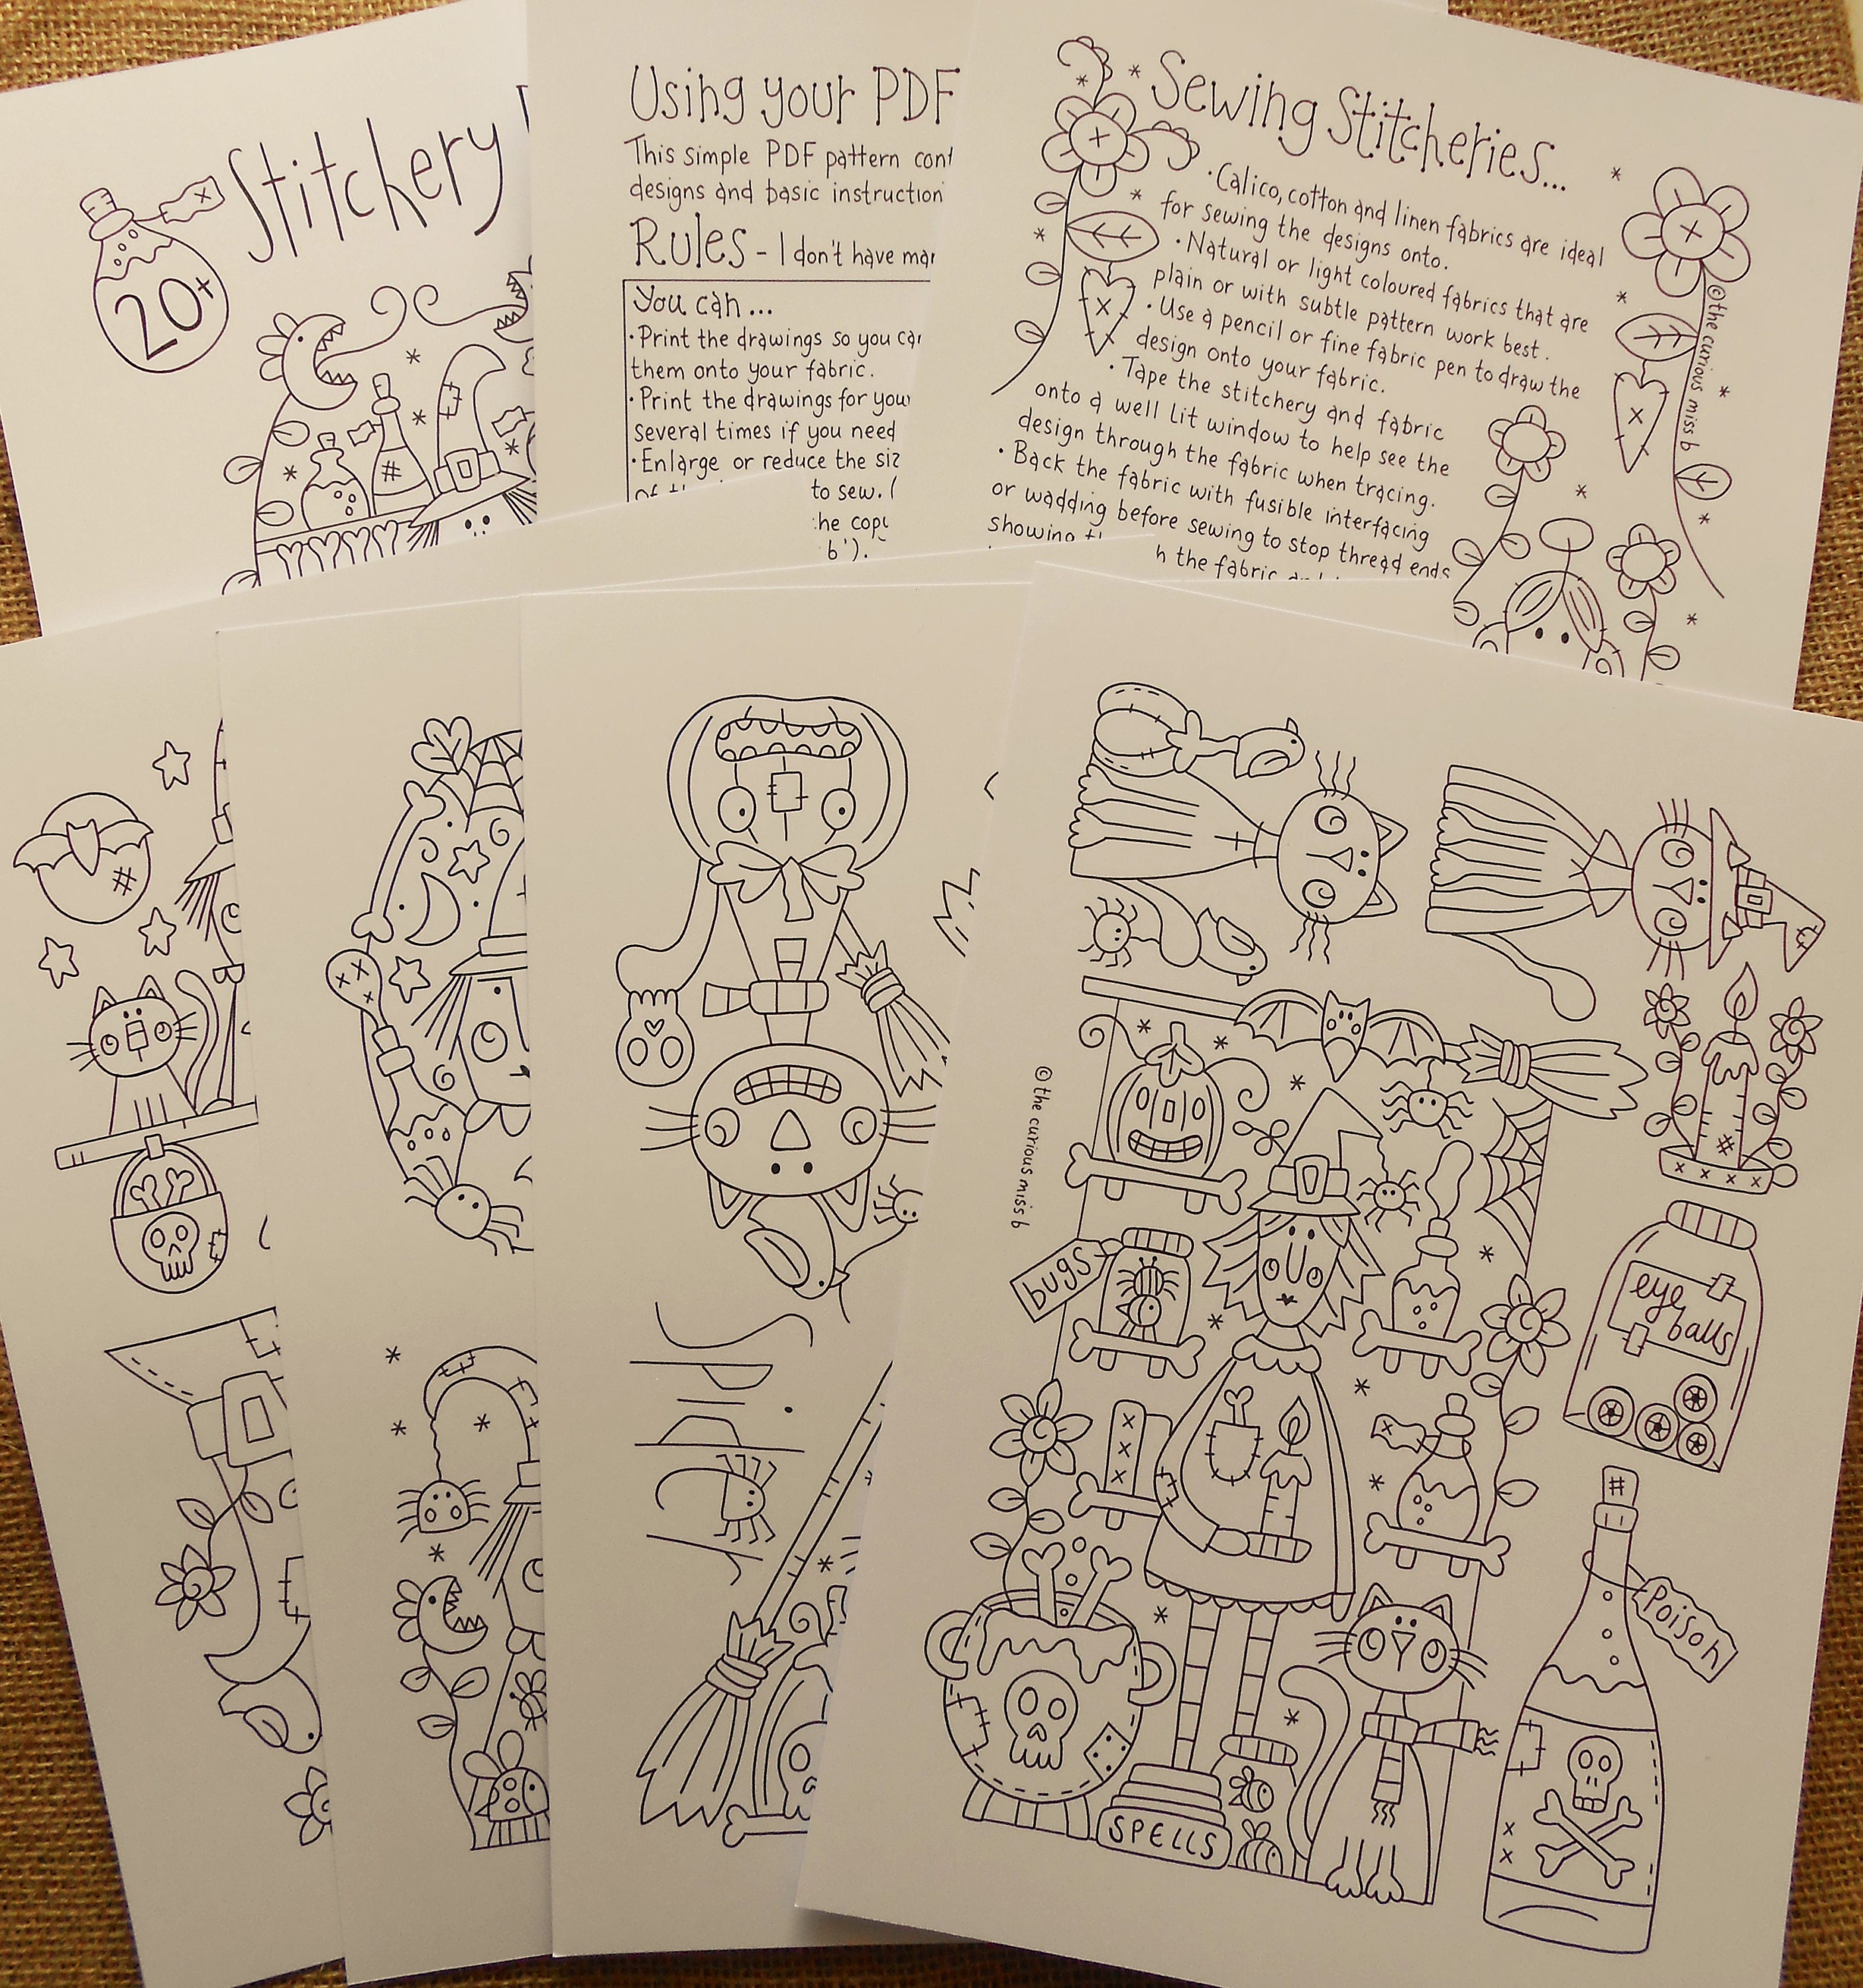 Stitchery
20+
Using your PDF
This simple PDF pattern
designs and basic instruction
Rules - I don't have
You can...
• Print the drawings so you
them onto your fabric.
• Print the drawings for you
several times if you need
• Enlarge or reduce the
to sew. (
b').
Sewing Stitcheries...
• Calico, cotton and linen fabrics are ideal
for sewing the designs onto.
• Natural or light coloured fabrics that are
plain or with subtle pattern work best.
• Use a pencil or fine fabric pen to draw the
design onto your fabric.
• Tape the stitchery and fabric
onto a well lit window to help see the
design through the fabric when tracing.
• Back the fabric with fusible interfacing
or wadding before sewing to stop thread ends
showing
the fabric
© the curious miss b
© the curious miss b
bugs
eye
balls
Poison
SPELLS